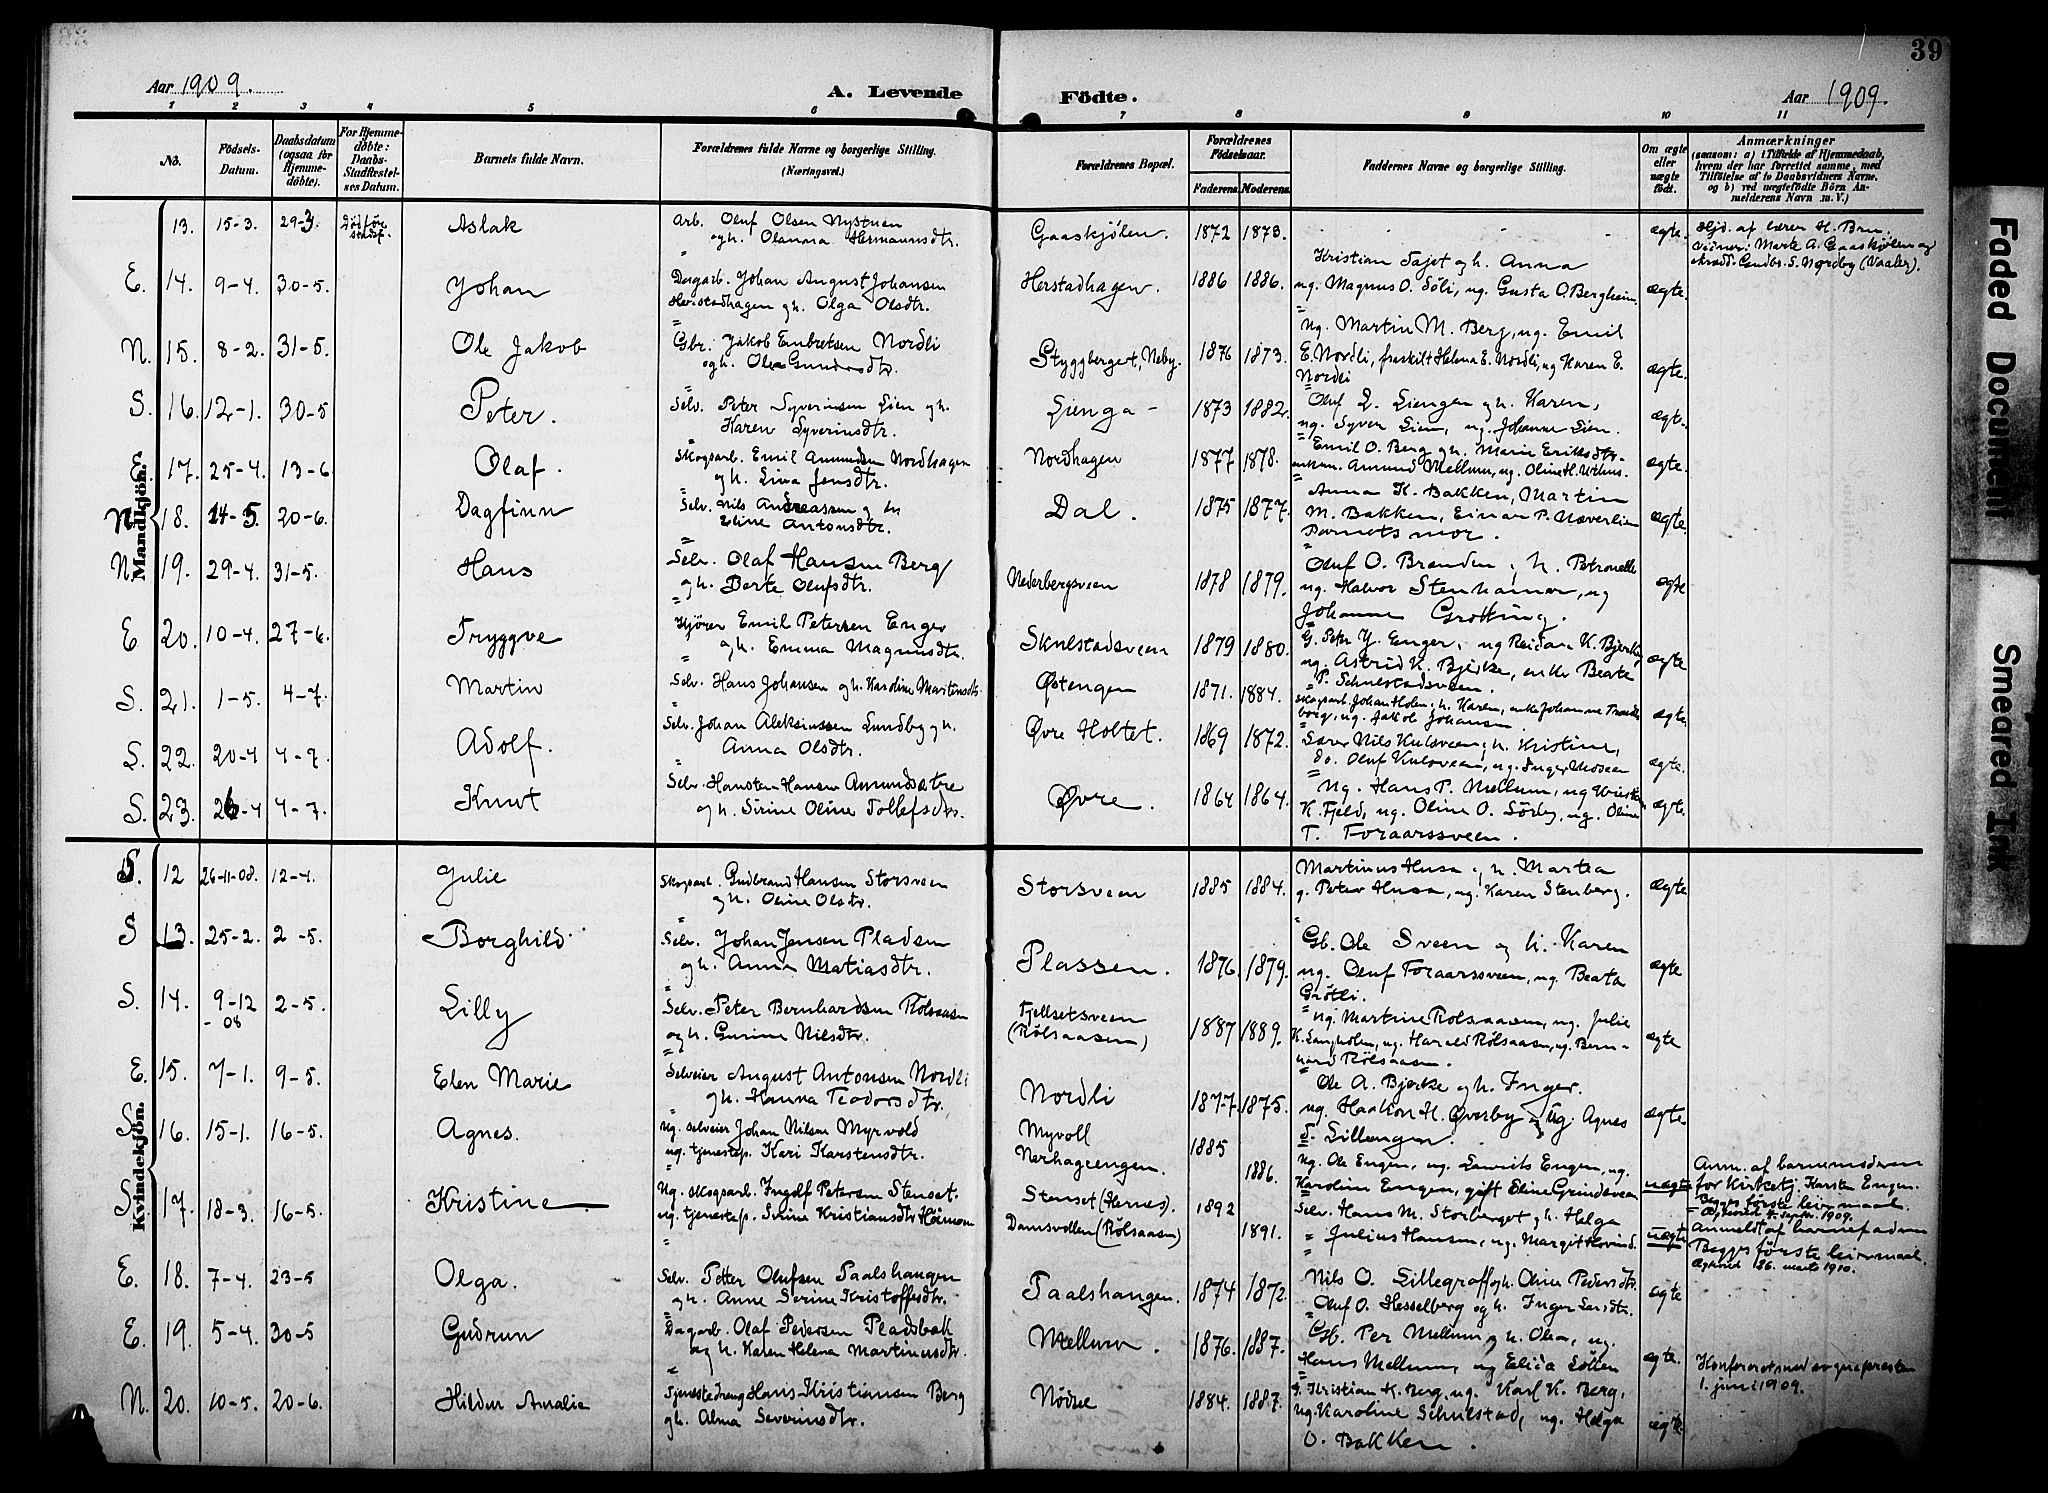 39
Aar 1909.
A. Levende Födte.
Aar 1909.
1 2 3 4 5 6 7 8 9 10 11
No.
Födsels-
Datum.
Daabsdatum
(ogsaa for
Hjemme-
döbte).
For Hjemme-
döbte:
Daabs-
Stadfæstel-
ses Datum.
Barnets fulde Navn.
Forældrenes fulde Navne og borgerlige Stilling.
(Næringsvei.)
Forældrenes Bopæl.
Forældrenes
Födselsaar.
Faderens. Moderens.
Faddernes Navne og borgerlige Stilling.
Om ægte
eller
uægte
födt.
Anmærkninger
(saasom: a) i Tilfælde af Hjemmedaab,
hvem der har forrettet samme, med
Tilföielse af to Daabsvidners Navne.
og b) ved uægtefödte Börn An-
melderens Navn m. V.)
Mandkjön.
13. 15-3. 29-3. Aslak
Arb. Oluf Olsen Nystuen
og h. Olianna Hermannsdtr.
Gaaskjølen. 1872 1873. ægte.
Hjd. af lærer H. Bru.
E. 14. 9-4. 30-5. Johan
Dagarb. Johan August Johansen
Herstadhagen og h. Olga Olsdtr.
Herstadhagen. 1886 1886.
Kristian Tajet og h. Anna
ug. Magnus O. Søli, ug. Gusta O. Bergheim.
ægte.
N. 15. 8-2. 31-5. Ole Jakob
Gbr. Jakob Embretsen Nordli
og h. Olea Gundersdtr.
Styggberget, Neby. 1876 1873.
Ug. Martin M. Berg, ug. Emil
E. Nordli, fraskilt Helena E. Nordli, ug Karen E.
Nordli
ægte.
S. 16. 12-1. 30-5 Peter.
Selv. Peter Syverinsen Lien og h.
Karen Syverinsdtr.
Lienga - 1873 1882.
Oluf L. Liengen og h. Karen,
ug. Syver Lien, ug. Johanne Lien.
ægte.
17. 25-4. 13-6 Olaf.
Skogsarb. Emil Amundsen Nordhagen
og h. Lina Jensdtr.
Nordhagen 1877 1878.
Emil O. Berg og h. Marie Eriksdtr.
enkem. Amund Mellum, ug. Oline H.
ægte.
N. 18. 14-5. 20-6. Dagfinn
Selv. Nils Andreassen og h
Eline Antonsdtr.
Dal. 1875 1877.
Anna K. Bakken, Martin
M. Bakken, Einar P. Næverlien
Barnets mor.
ægte.
N. 19. 29-4. 31-5. Hans
Selv. Olaf Hansen Berg
og h. Berte Olufsdtr.
Nederbergsveen 1878 1879.
Oluf O. Branden, h. Petronelle
ug. Halvor Stenhamar, ug
Johanne Grøtting.
ægte
E 20. 10-4. 27-6. Tryggve
Kjører Emil Petersen Enger
og h. Emma Magnusdtr.
Skulstadsveen 1879 1880.
G. Peter Y. Enger, ug Reidar K. Bjerke
ug. Astrid K. Bjerke, enke Beate
P. Schulstadsveen.
ægte
S. 21. 1-5. 4-7. Martin
Selv. Hans Johansen og h. Karoline Martinsdtr.
Østengen 1871. 1884.
Skogsarb. Johan Holen, h. Karen, enke Johanne
ug. Jakob Johansen
ægte.
S. 22. 20-4 4-7. Adolf.
Selv. Johan Aleksiussen Lundby og h.
Anna Olsdtr.
Øvre Holtet. 1869 1872.
Nils Kulsveen, h. Kristine,
do. Oluf Kulsveen, ug. Inger Moseen
ægte.
S. 23. 26-4 4-7. Knut
Selv. Hansten Hansen Amundsætre
og h. Sirine Oline Tollefsdtr.
Øvre. 1864 1864.
Ug. Hans P. Mellum, ug Kristen
K. Fjeld, ug. Oline O. Sörby, ug. Oline
T. Foraarssveen.
ægte.
Kvindekjön.
S. 12 26-11-08. 12-4. Julie
Skogsarb. Gudbrand Hansen Storsveen
og h. Oline Olsdtr.
Storsveen 1885 1884.
Martinus Husa og h. Martea
g. Peter Husa, ug. Karen Stenberg.
ægte
S 13. 25-2. 2-5. Borghild.
Selv. Johan Jensen Pladsen
og h. Anna Matiasdtr.
Plassen. 1876. 1879.
Gb. Ole Sveen og h. Karen
ug. Oluf Foraarssveen, ug. Beata
Grøtli.
ægte
S. 14. 9-12-08 2-5. Lilly
Selv. Peter Bernhardsen Rølsaasen
og h. Gurine Nilsdtr.
Fjellsetsveen
(Rølsaasen) 1887 1889.
ug. Martine Rølsaasen, ug. Julie
K. Langholen, ug. Harald Rølsaasen, ug. Bern-
hard Rølsaasen.
ægte
E. 15. 7-1. 9-5. Elen Marie
Selveier August Antonsen Nordli
og h. Hanna Teodorsdtr.
Nordli 1877. 1875.
Ole A. Bjerke og h. Inger.
ug. Haakon H. Øverby, ug. Agnes
S. Lillengen.
ægte.
S. 16. 15-1. 16-5. Agnes.
Ug. selveier Johan Nilsen Myrvold
ug. tjenestep. Kari Karstensdtr.
Myvoll
Nerhageengen. 1885 1886.
ug. Ole Engen, ug. Laurits Engen, ug.
Karoline Engen, gift Eline Grindsveen
uægte
Anm. af barnemoderen
for Kirketj. Karsten Engen.
Begges første leiermaal.
Ægtevied 4. septbr. 1909.
S. 17. 18-3. 16-5. Kristine.
Ug. skogsarb. Ingolf Petersen Stenset.
ug. tjenestep. Sirine Kristiansdtr Heimon
Stenset (Hernes).
Damsvollen (Rølsaasen) 1892 1891.
Selv. Hans M. Storberget og h. Helga
" Julius Hansen, ug. Margit Hovind.
uægte
Anmeldt af barnefaderen
Begges første leiermaal.
Ægtevied 26. marts 1910.
E. 18. 7-4. 23-5 Olga.
Selv. Petter Olufsen Taalshangen
og h. Anne Serine Kristoffersdtr.
Taalshangen. 1874 1872.
Nils O. Lillegraff og h. Oline Pedersdtr.
Oluf O. Hesselberg og h. Inger Larsdtr.
ægte
E. 19. 5-4. 30-5 Gudrun
Dagarb. Olaf Pedersen Pladsbak
og h. Karen Helena Martinusdtr.
Mellum. 1876. 1887.
Gb. Per Mellum og h. Olea, ug.
Hans Mellum, ug Elida Løtten
ægte.
Konfereret med sognepresten
1. juni 1909.
N. 20. 10-5. 20-6. Hildur Amalie
Tjenestedreng Hans Kristiansen Berg
og h. Alma Severinsdtr.
Nødsel 1884. 1887.
G. Kristian K. Berg, ug. Karl K. Berg,
ug. Karoline Schulstad, ug. Helga
O. Bakken.
ægte.
Faded Document
Smeared Ink